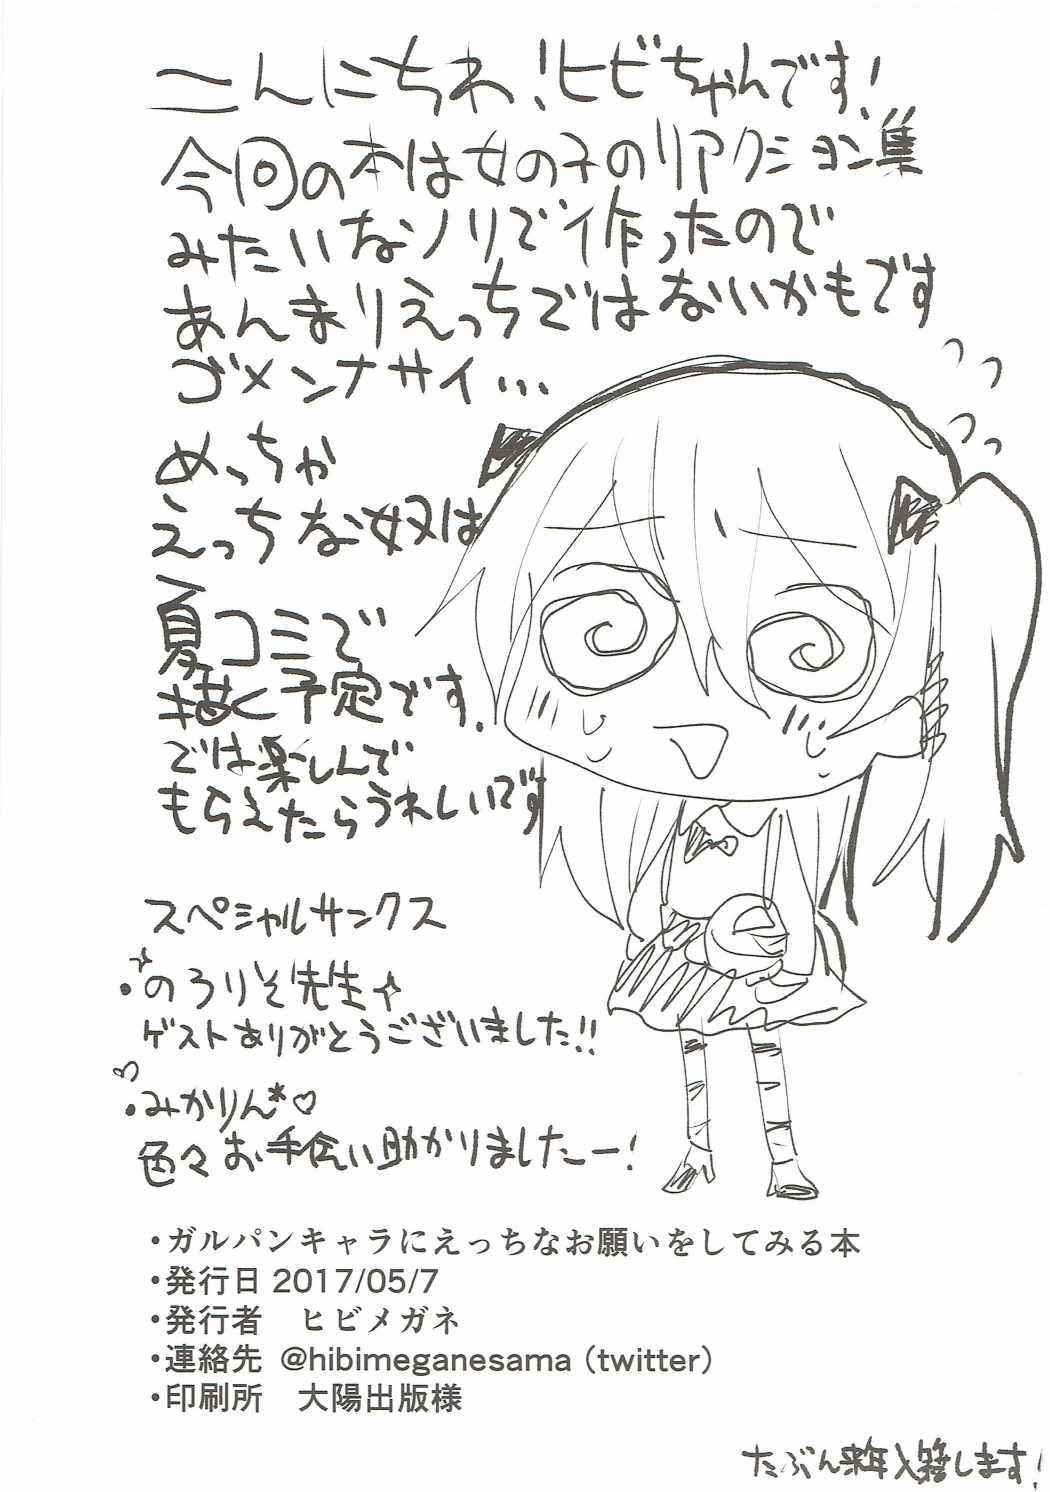 こんにちわ！ヒビちゃんです！
今回の本は女の子のリアクション集
みたいなノリで作ったので
あんまりえっちではないかもです
ゴメンナサイ…
めっちゃ
えっちな奴は
夏コミで
描く予定です.
では楽しんで
もらえたらうれしいです
スペシャルサンクス
・のろりそ先生
ゲストありがとうございました!!
・みかりん*♡
色々お手伝い助かりましたー！
・ガルパンキャラにえっちなお願いをしてみる本
・発行日 2017/05/7
・発行者　ヒビメガネ
・連絡先 @hibimeganesama（twitter）
・印刷所　大陽出版様
たぶん来年入籍します！